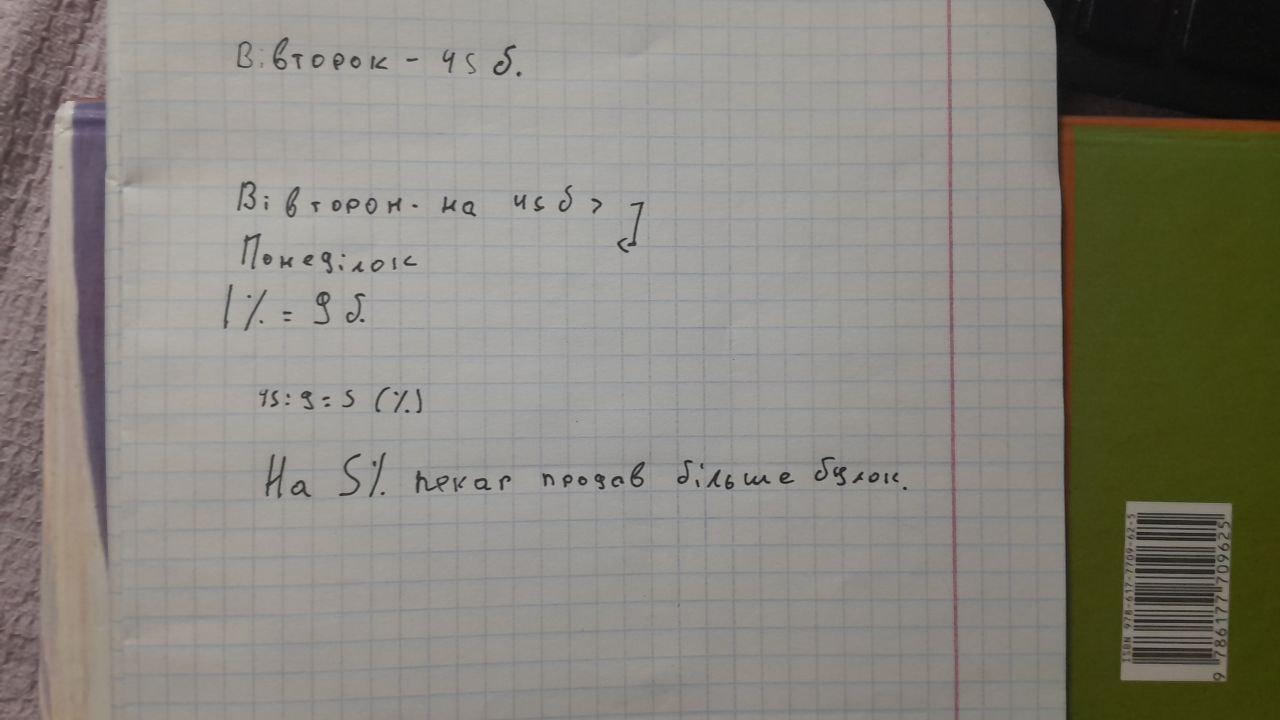 Вівторок - 45 б.
Вівторон. на 45 б >
Понеділок
1% = 9 б.
45:9=5 (%)
На 5% пекар продав більше булок.
ISBN 978-617-7709-62-5
9 786177 709625